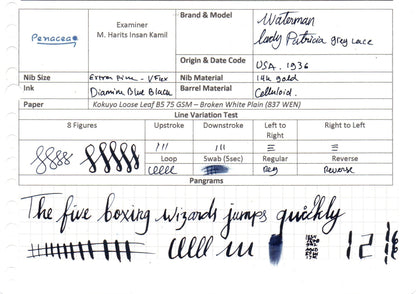 Penacea
Examiner
M. Harits Insan Kamil
Brand & Model
Waterman
Lady Patricia grey lace
Origin & Date Code
USA. 1936
Nib Size
Extra Fine - VFlex
Nib Material
14k gold
Ink
Diamine Blue Black
Barrel Material
Celluloid.
Paper
Kokuyo Loose Leaf B5 75 GSM – Broken White Plain (837 WEN)
Line Variation Test
8 Figures
Upstroke
Downstroke
Left to Right
Right to Left
Loop
Swab (5sec)
Regular
Reverse
Reg
Reverse
Pangrams
The five boxing wizards jumps quickly